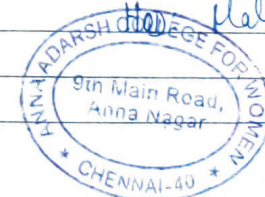 ANNA ADARSH COLLEGE FOR WOMEN
9th Main Road,
Anna Nagar
* CHENNAI-40 *